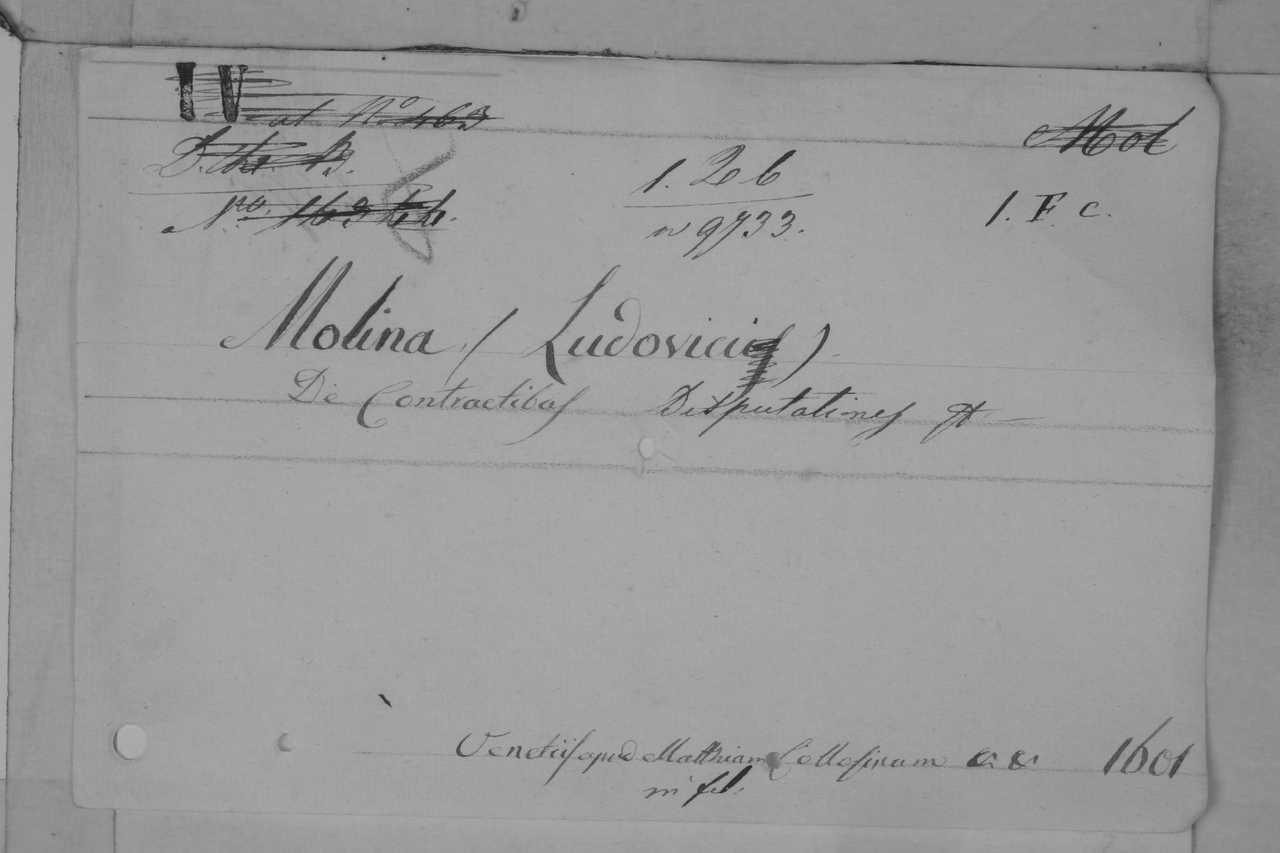 IV
at No 463
Mol
Litt. B.
1. 2 6
No. 163
n 9733.
1. F c.
Molina (Ludovici)
De Contractibus Disputationes &
Venetiis apud Matthiam Collosinum & & 1601
in fol.